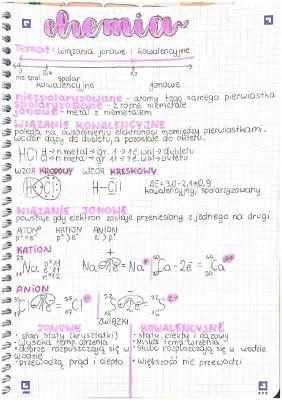 chemia
Temat: Wiązania jonowe i kowalencyjne
0 0,4 1,7
niespol. spolar. jonowe
kowalencyjne
niespolaryzowane - atomy tego samego pierwiastka
spolaryzowane - 2 różne niemetale
jonowe - metal z niemetalem
WIĄZANIE KOWALENCYJNE
polega na uwspólnieniu elektronów pomiędzy pierwiastkami.
wodór dąży do dubletu, a pozostałe do oktetu.
HCl H → n metal → gr. 1 → 1e wal → dubletu
Cl → n metal → gr. 17 → 7e wal → oktetu
WZÓR KROPKOWY WZÓR KRESKOWY
H Cl H-Cl ΔE=3,0-2,1=0,9
kowalencyjny, spolaryzowany
WIĄZANIE JONOWE
powstaje gdy elektron zostaje przeniesiony z jednego na drugi
ATOM KATION ANION
p⁺=e⁻ p⁺>e⁻ e⁻>p⁺
KATION
Na p⁺ 11 e⁻ 11 Na Na Ca-2e⁻= Ca
ANION
Cl S
ZWIĄZKI
JONOWE KOWALENCYJNE
• stan stały (kryształki) • stały ciekły i gazowy
• wysoka temp. wrzenia • niska temp. wrzenia
• dobrze rozpuszczają się w wodzie • słabo rozpuszczają się w wodzie
• przewodzą prąd i ciepło • większość nie przewodzi